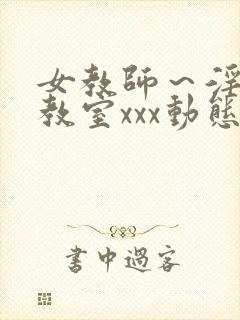 女教師～淫
教室xxx動態
書中過客